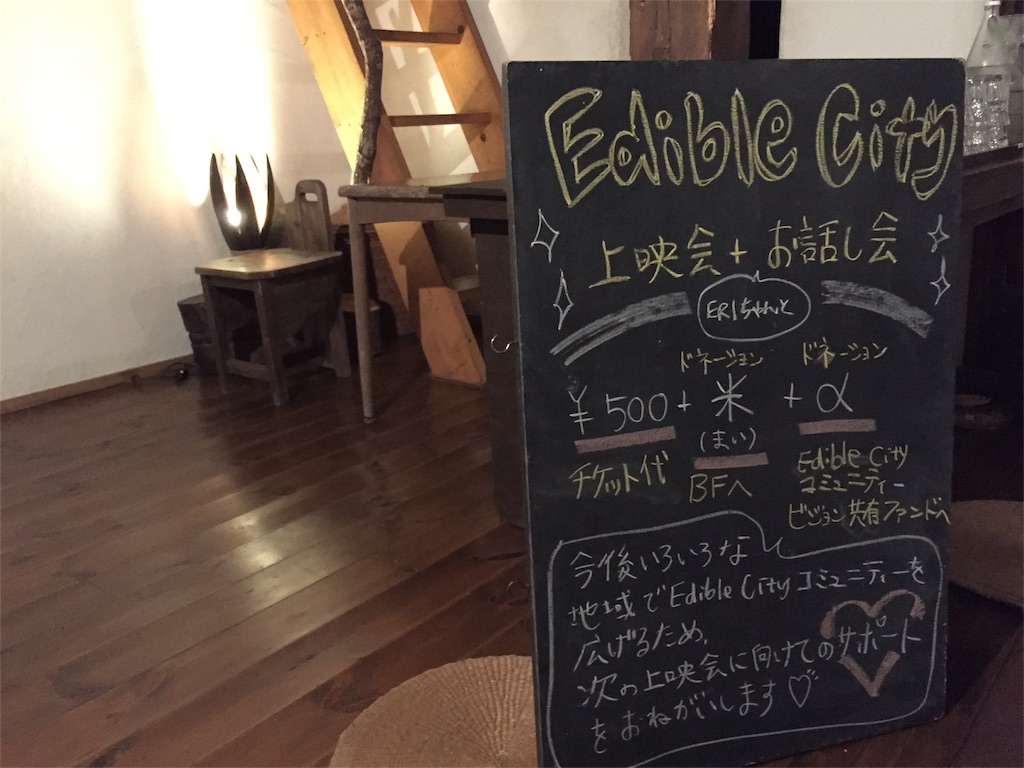 Edible City
上映会+お話し会
ERIちゃんと
ドネーション ドネーション
¥500+米+α
(まい)
チケット代 BFへ Edible City
コミュニティー
ビジョン共有ファンドへ
今後いろいろな
地域でEdible Cityコミュニティーを
広げるため、
次の上映会に向けてのサポート
をおねがいします♡